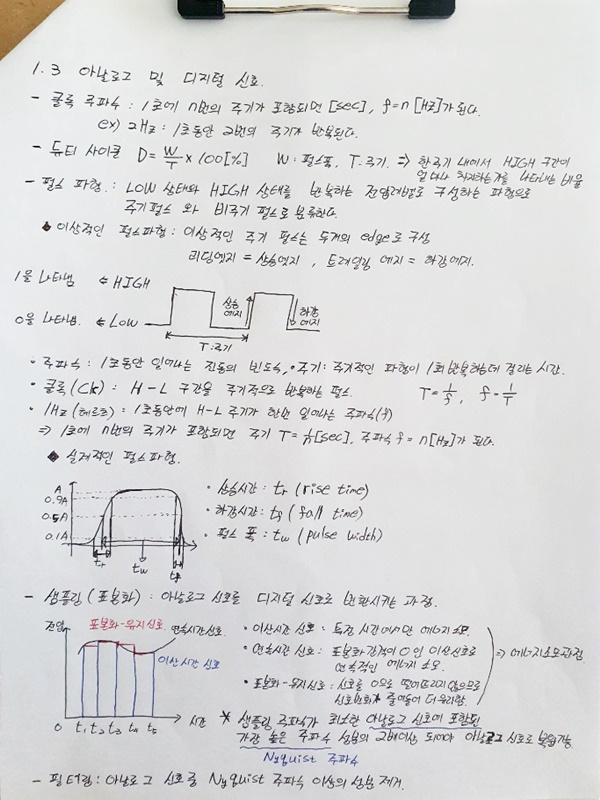 1.3 아날로그 및 디지털 신호.
- 클록 주파수 : 1초에 n번의 주기가 포함되면 [sec], f=n [Hz]가 된다.
ex) 2Hz : 1초동안 2번의 주기가 반복된다.
- 듀티 사이클 D= W/T ×100[%] W : 펄스폭, T : 주기. ⇒ 한주기 내에서 HIGH 구간이
얼마나 차지하는가를 나타내는 비율
- 펄스 파형. : LOW 상태와 HIGH 상태를 반복하는 전압레벨로 구성하는 파형으로
주기펄스 와 비주기 펄스로 분류한다.
◆ 이상적인 펄스파형 : 이상적인 주기 펄스는 두개의 edge로 구성
리딩엣지 = 상승엣지 , 트레일링 에지 = 하강에지.
1을 나타냄 ← HIGH
0을 나타냄. ← LOW
상승
에지
하강
에지
T:주기
• 주파수 : 1초동안 일어나는 진동의 빈도수, • 주기 : 주기적인 파형이 1회 반복하는데 걸리는 시간.
• 클록(Ck) : H-L 구간을 주기적으로 반복하는 펄스. T=1/f, f=1/T
• 1Hz (헤르츠) : 1초동안에 H-L 주기가 한번 일어나는 주파수(f)
⇒ 1초에 n번의 주기가 포함되면 주기 T=1/n[sec], 주파수 f=n[Hz]가 된다.
◆ 실제적인 펄스파형.
A
0.9A
0.5A
0.1A
tr
tw
tf
• 상승시간 : tr (rise time)
• 하강시간 : tf (fall time)
• 펄스 폭 : tw (pulse width)
- 샘플링(표본화) : 아날로그 신호를 디지털 신호로 변환시키는 과정.
전압
표본화-유지신호.
연속시간신호.
이산시간 신호
0 t1 t2 t3 t4 t5 시간
• 이산시간 신호 : 특정 시간에서만 에너지소모.
• 연속시간 신호 : 표본화 간격이 0인 이산신호로
연속적인 에너지 소모.
• 표본화-유지신호 : 신호를 0으로 떨어뜨리지 않으므로
신호변화가 줄어들어 더 유리함.
⇒ 에너지소모관점
* 샘플링 주파수가 최소한 아날로그 신호에 포함된
가장 높은 주파수 성분의 2배이상 되어야 아날로그 신호로 복원가능
Nyquist 주파수
- 필터링 : 아날로그 신호를 Nyquist 주파수 이상의 성분 제거.